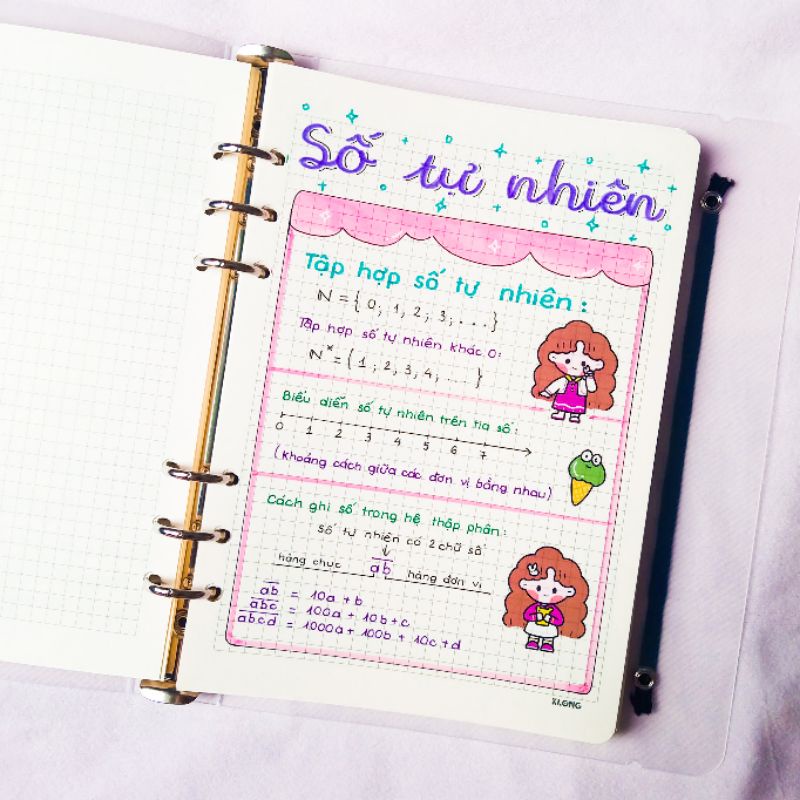 Số tự nhiên
Tập hợp số tự nhiên:
N = { 0; 1; 2; 3; ...}
Tập hợp số tự nhiên khác 0:
N* = { 1; 2; 3; 4; ... }
Biểu diễn số tự nhiên trên tia số:
0 1 2 3 4 5 6 7
(khoảng cách giữa các đơn vị bằng nhau)
Cách ghi số trong hệ thập phân:
Số tự nhiên có 2 chữ số
↓
hàng chục a̅b̅ hàng đơn vị
a̅b̅ = 10a + b
a̅b̅c̅ = 100a + 10b + c
a̅b̅c̅d̅ = 1000a + 100b + 10c + d
KLONG